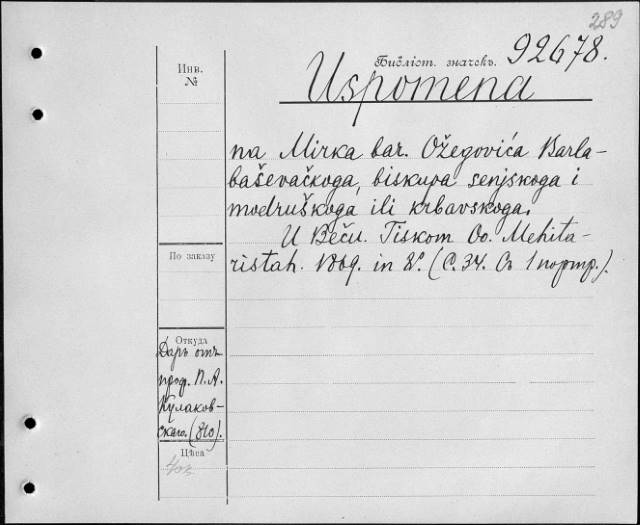 289
Библіот. значекъ. 92678.
Инв. №
Uspomena
na Mirka bar. Ožegovića Barla-
baševačkoga, biskupa senjskoga i
modruškoga ili krbavskoga.
U Beču. Tiskom Oo. Mehita-
ristah. 1869. in 8º. (С. 34. Съ 1 портр.).
По заказу
Откуда
Даръ отъ
проф. П. А.
Кулаков-
скаго. (810).
Цѣна